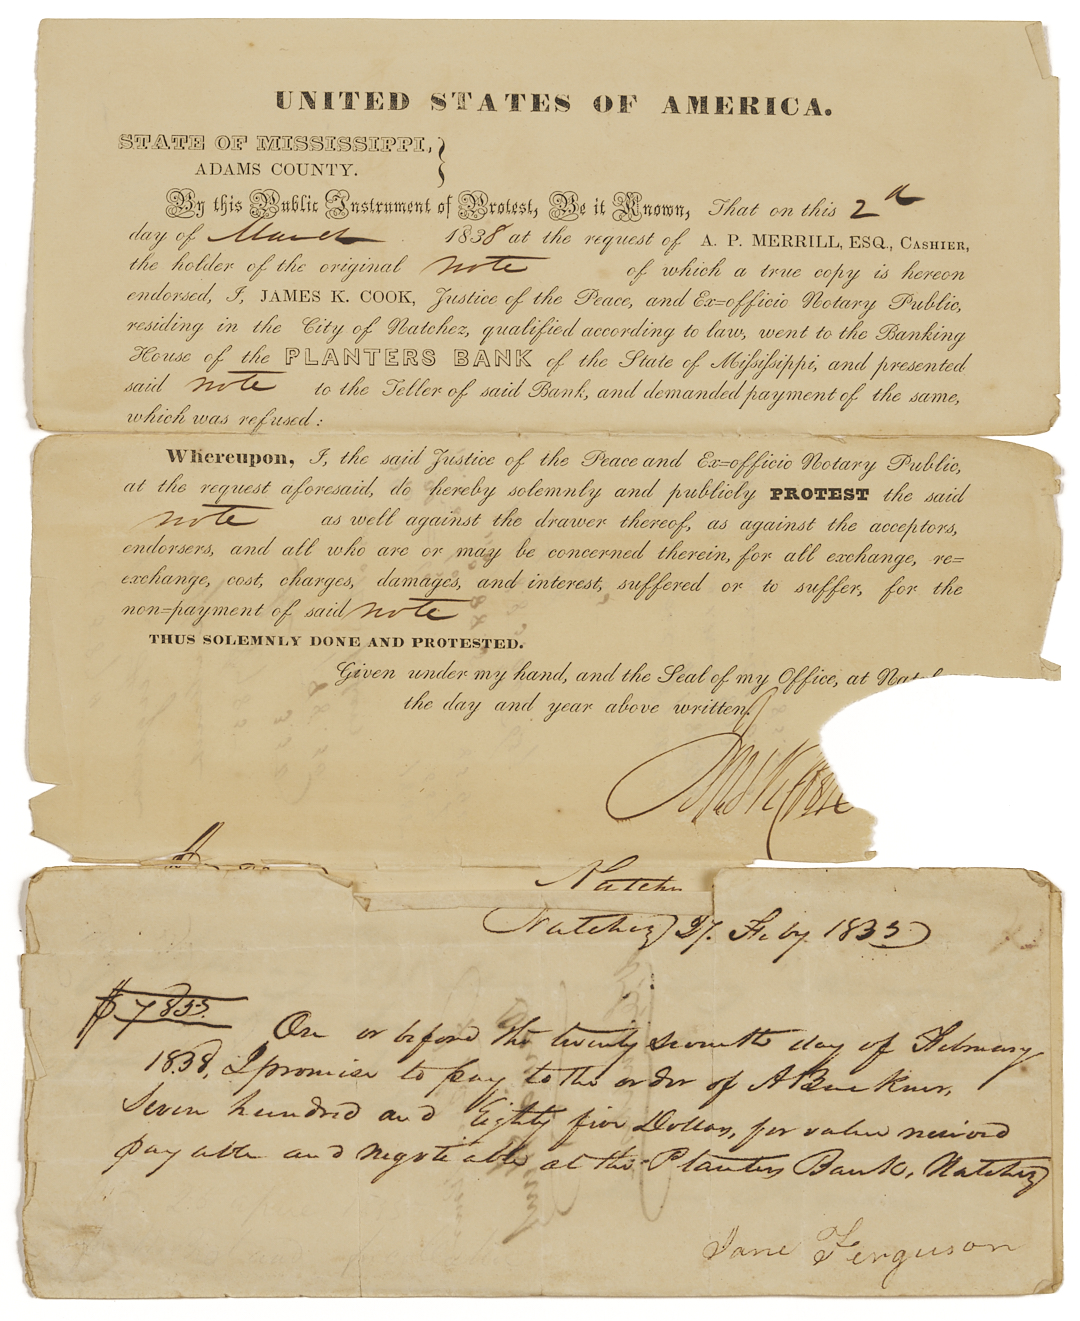 UNITED STATES OF AMERICA.
STATE OF MISSISSIPPI,
ADAMS COUNTY.
By this Public Instrument of Protest, Be it Known, That on this 2d
day of March 1838 at the request of A. P. MERRILL, ESQ., CASHIER,
the holder of the original note of which a true copy is hereon
endorsed, I, JAMES K. COOK, Justice of the Peace, and Ex=officio Notary Public,
residing in the City of Natchez, qualified according to law, went to the Banking
House of the PLANTERS BANK of the State of Missisippi, and presented
said note to the Teller of said Bank, and demanded payment of the same,
which was refused:
Whereupon, I, the said Justice of the Peace and Ex=officio Notary Public,
at the request aforesaid, do hereby solemnly and publicly PROTEST the said
note as well against the drawer thereof, as against the acceptors,
endorsers, and all who are or may be concerned therein, for all exchange, re=
exchange, cost, charges, damages, and interest, suffered or to suffer, for the
non=payment of said note
THUS SOLEMNLY DONE AND PROTESTED.
Given under my hand, and the Seal of my Office, at
the day and year above written.
Jas K Cook
Natchez
Natchez 27. Feby. 1835
$785.
On or before the twenty seventh day of February
1838, I promise to pay to the order of A Buckner,
Seven hundred and Eighty five Dollars, for value received
payable and negotiable at the Planters Bank, Natchez
Jane Ferguson